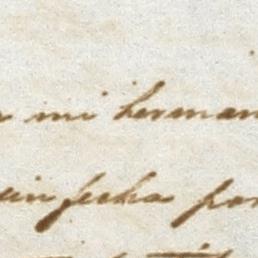 mi herman
sin fecha por